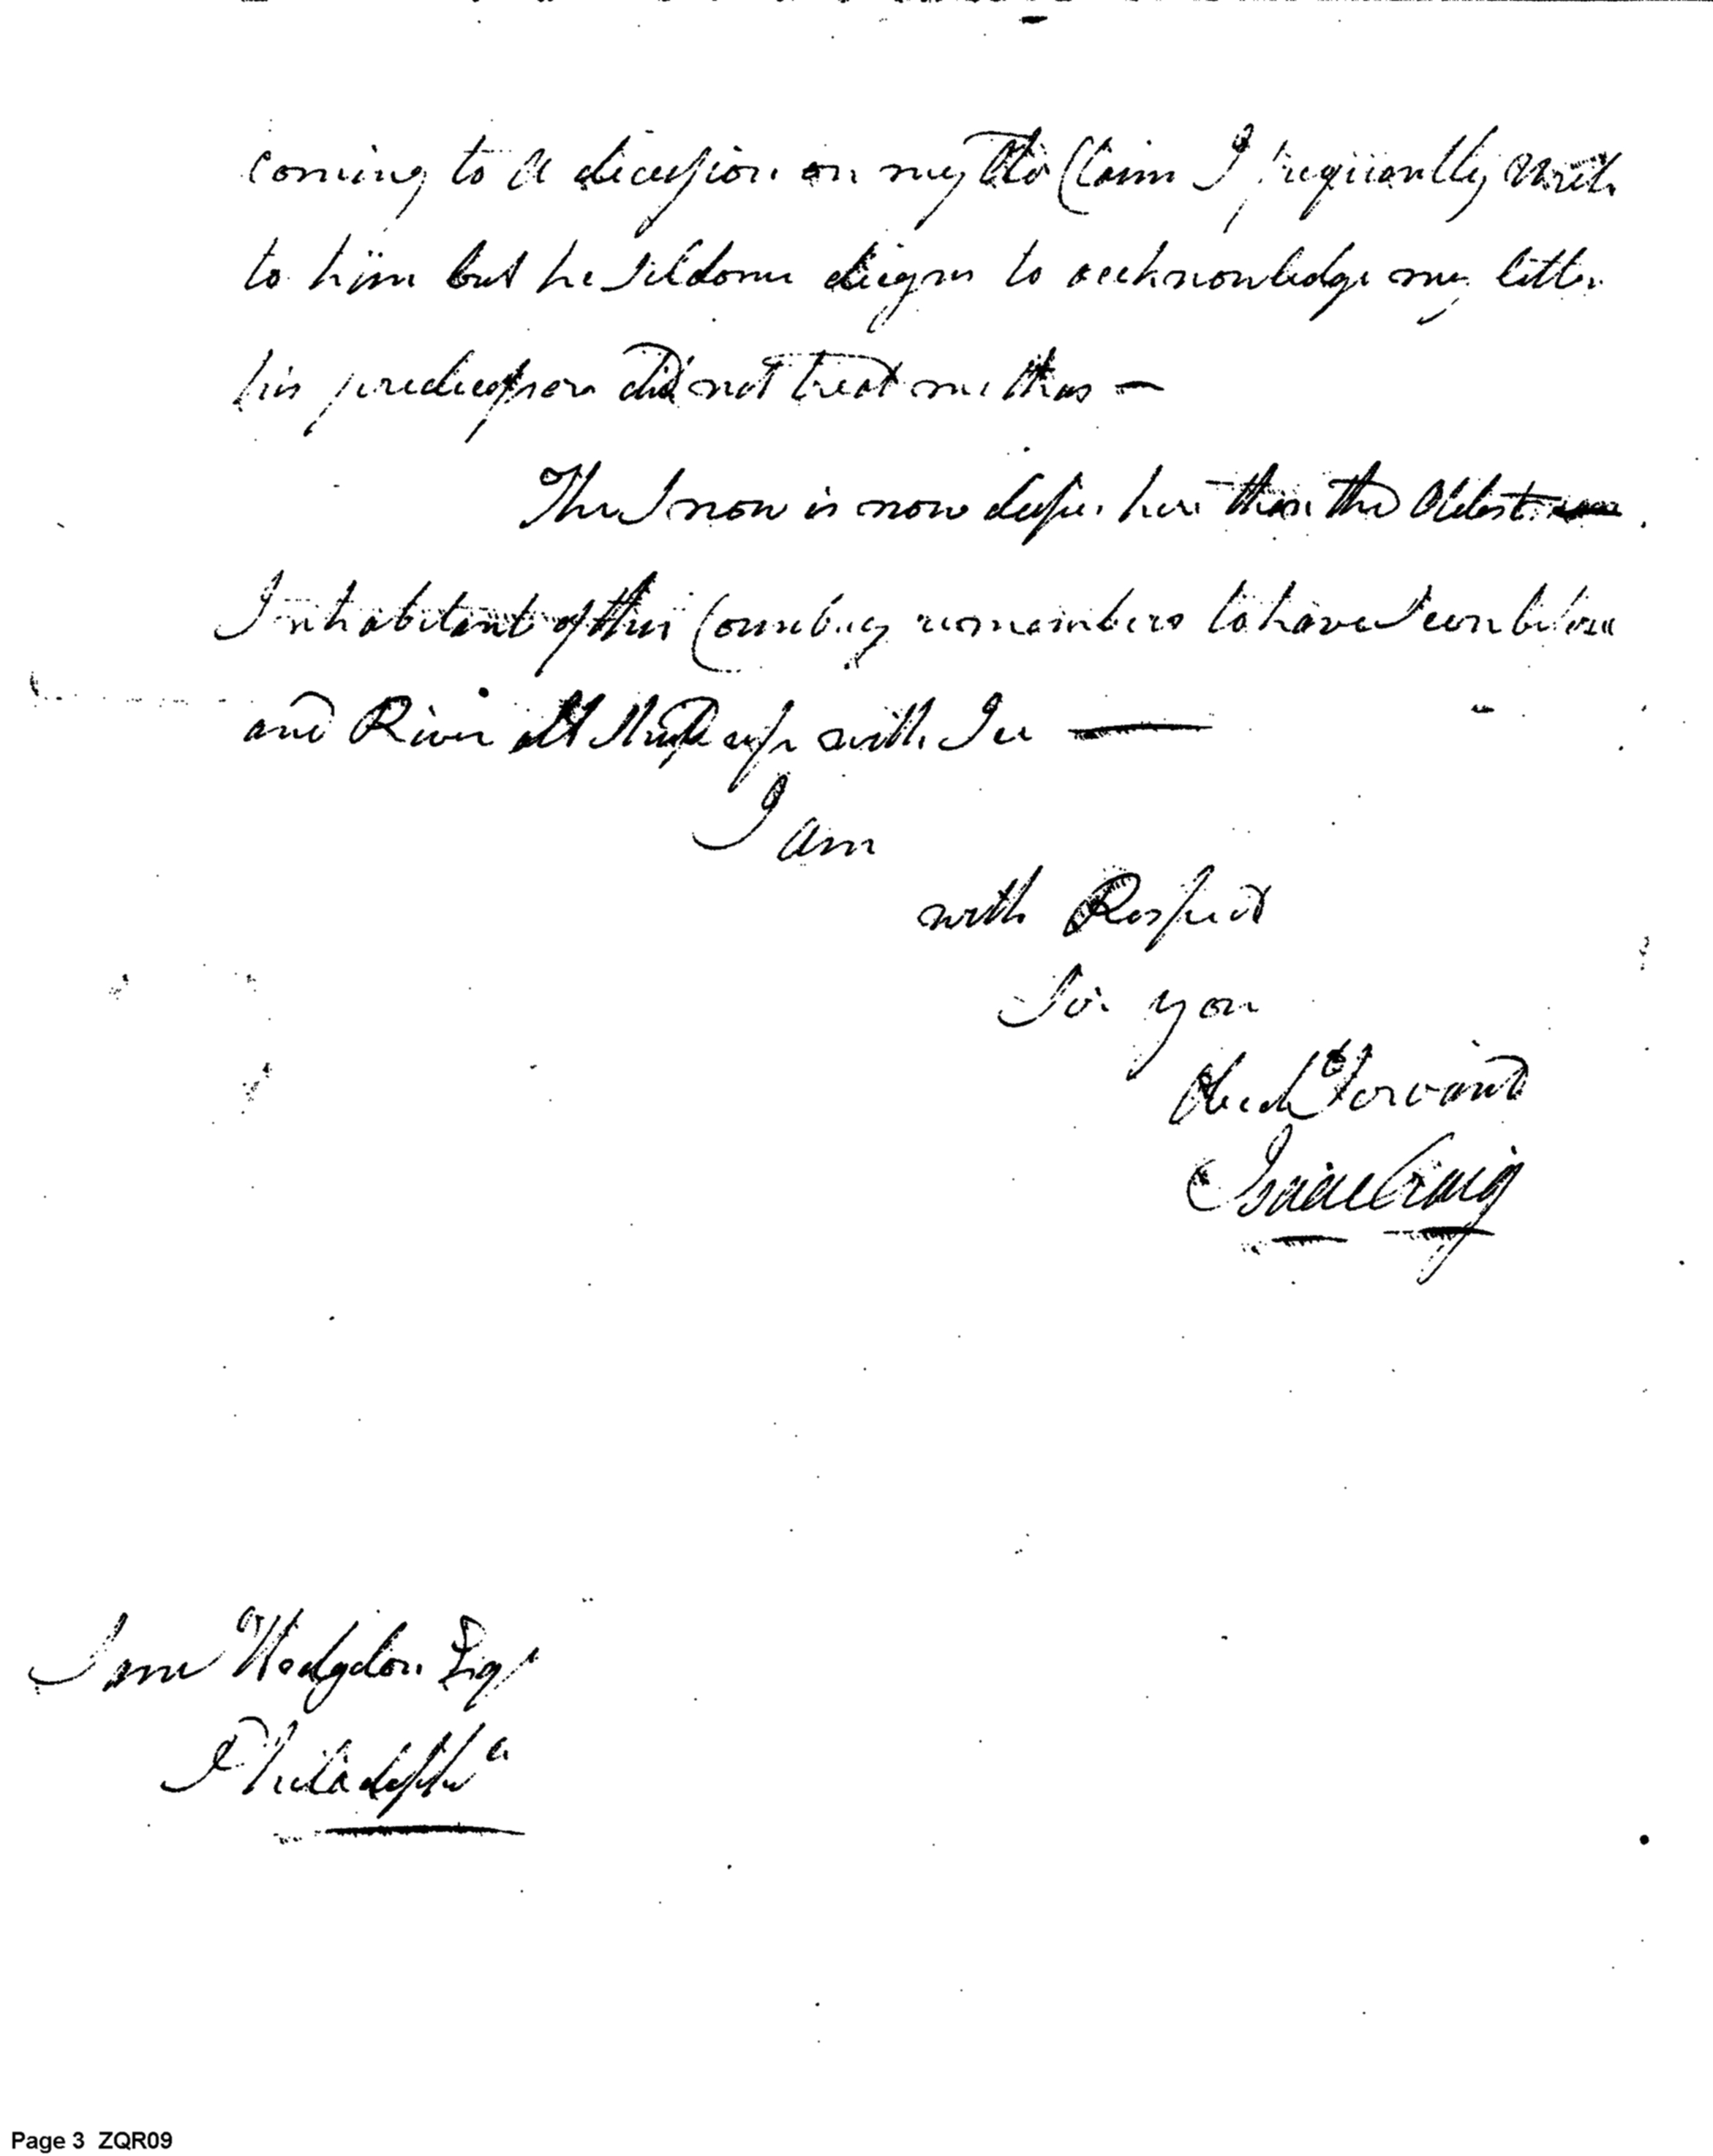 coming to a decession on my Old Claim I frequiantly write
to him but he seldome deigns to acknowledge my letter
his predecessor did not treat me thus —
The Snow is now deeper here than the Oldest
Inhabitant of this Country remembers to have seen before
and River all shut up with Ice —
I am
with Respect
Sir you
Obed.t Servant
Isaac Craig
Sam Hodgdon Esq.r
Philadelphia
Page 3 ZQR09